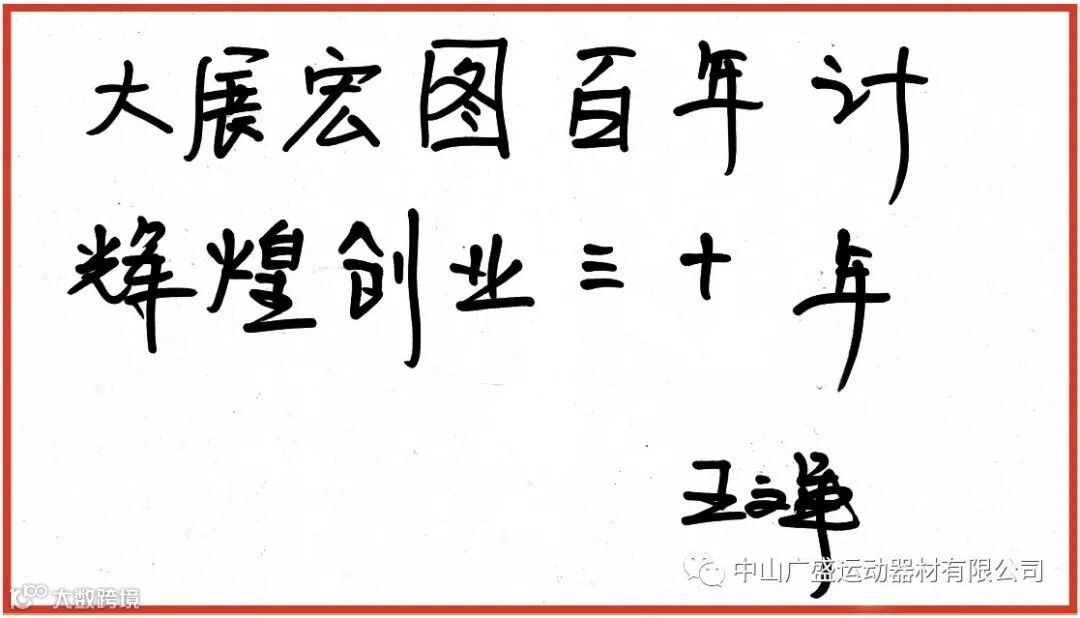 大展宏图百年计
辉煌创业三十年
王文
中山广盛运动器材有限公司
大数跨境